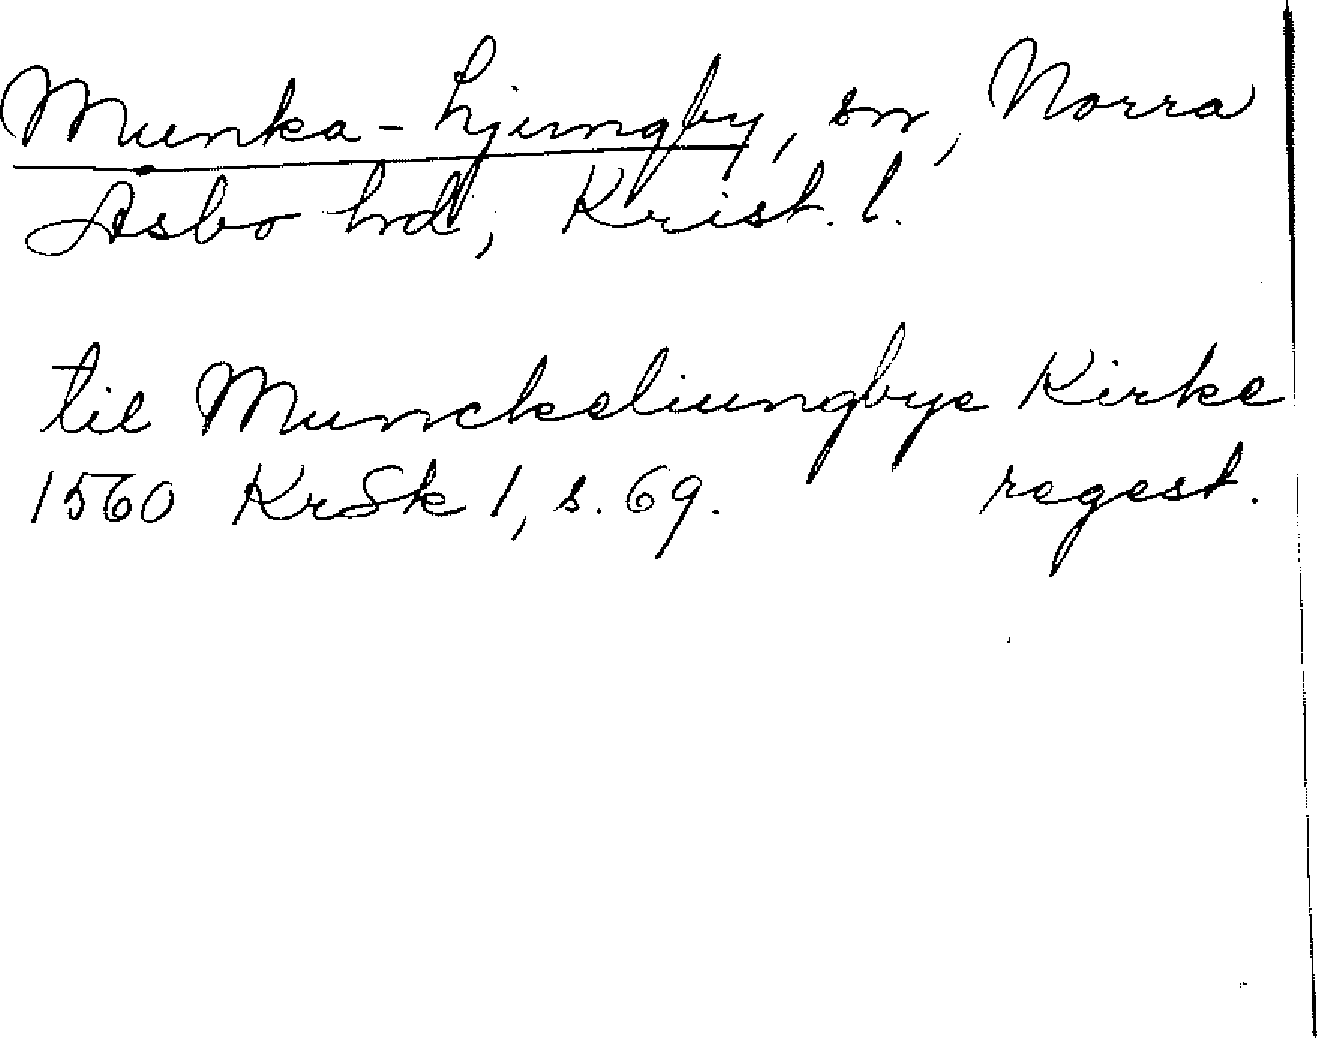 Munka-Ljungby, sn, Norra
Asbo hd, Krist. l.
til Munckeliungbye Kirke
1560 KrSk 1, s. 69. regest.